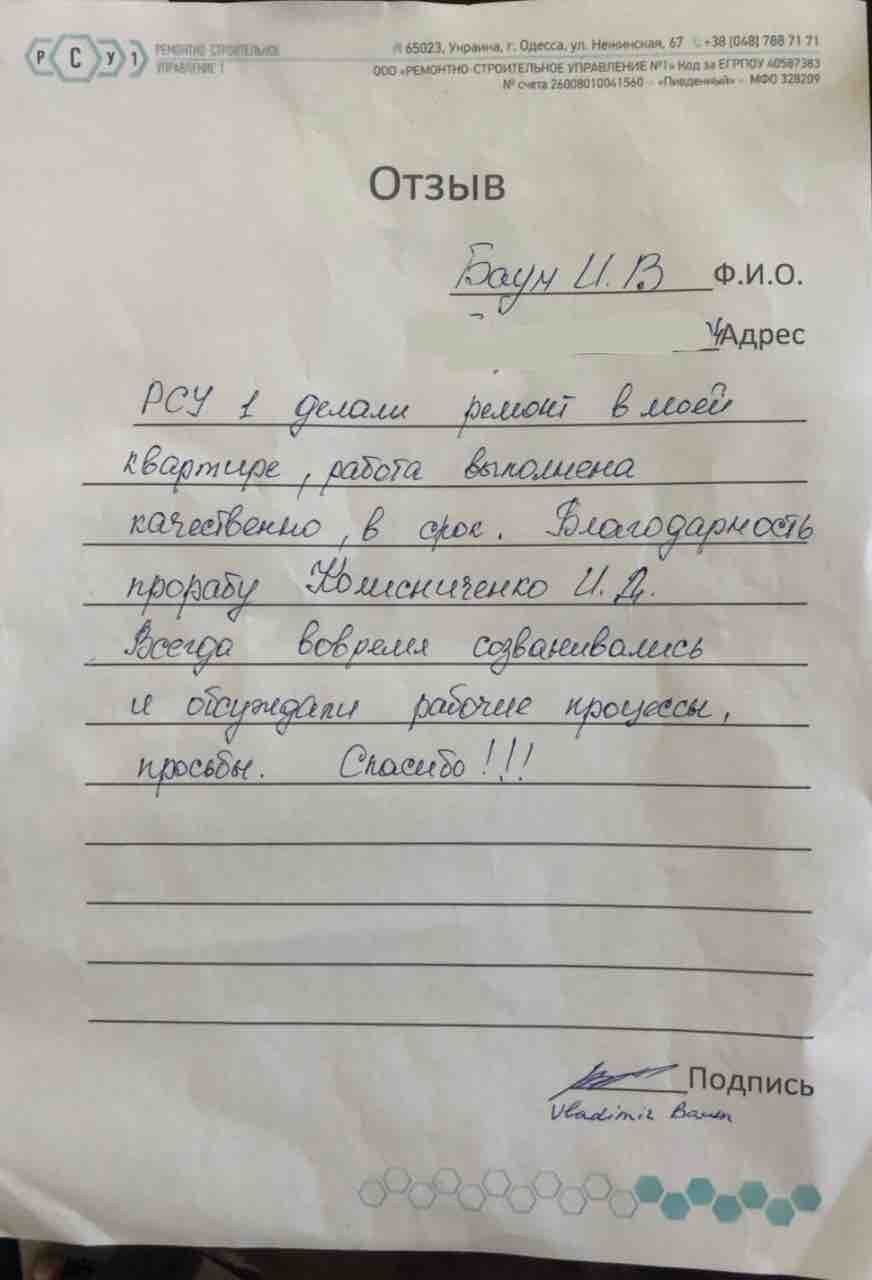 Р С У 1
РЕМОНТНО-СТРОИТЕЛЬНОЕ
УПРАВЛЕНИЕ 1
65023, Украина, г. Одесса, ул. Нежинская, 67 +38 (048) 788 71 71
ООО «РЕМОНТНО-СТРОИТЕЛЬНОЕ УПРАВЛЕНИЕ №1» Код за ЕГРПОУ 40587383
№ счета 26008010041560 - «Пивденный» - МФО 328209
Отзыв
Баун И. В Ф.И.О.
Адрес
РСУ 1 делали ремонт в моей
квартире, работа выполнена
качественно, в срок. Благодарность
прорабу Колисниченко И. Д.
Всегда вовремя созванивались
и обсуждали рабочие процессы,
просьбы. Спасибо!!!
Подпись
Vladimir